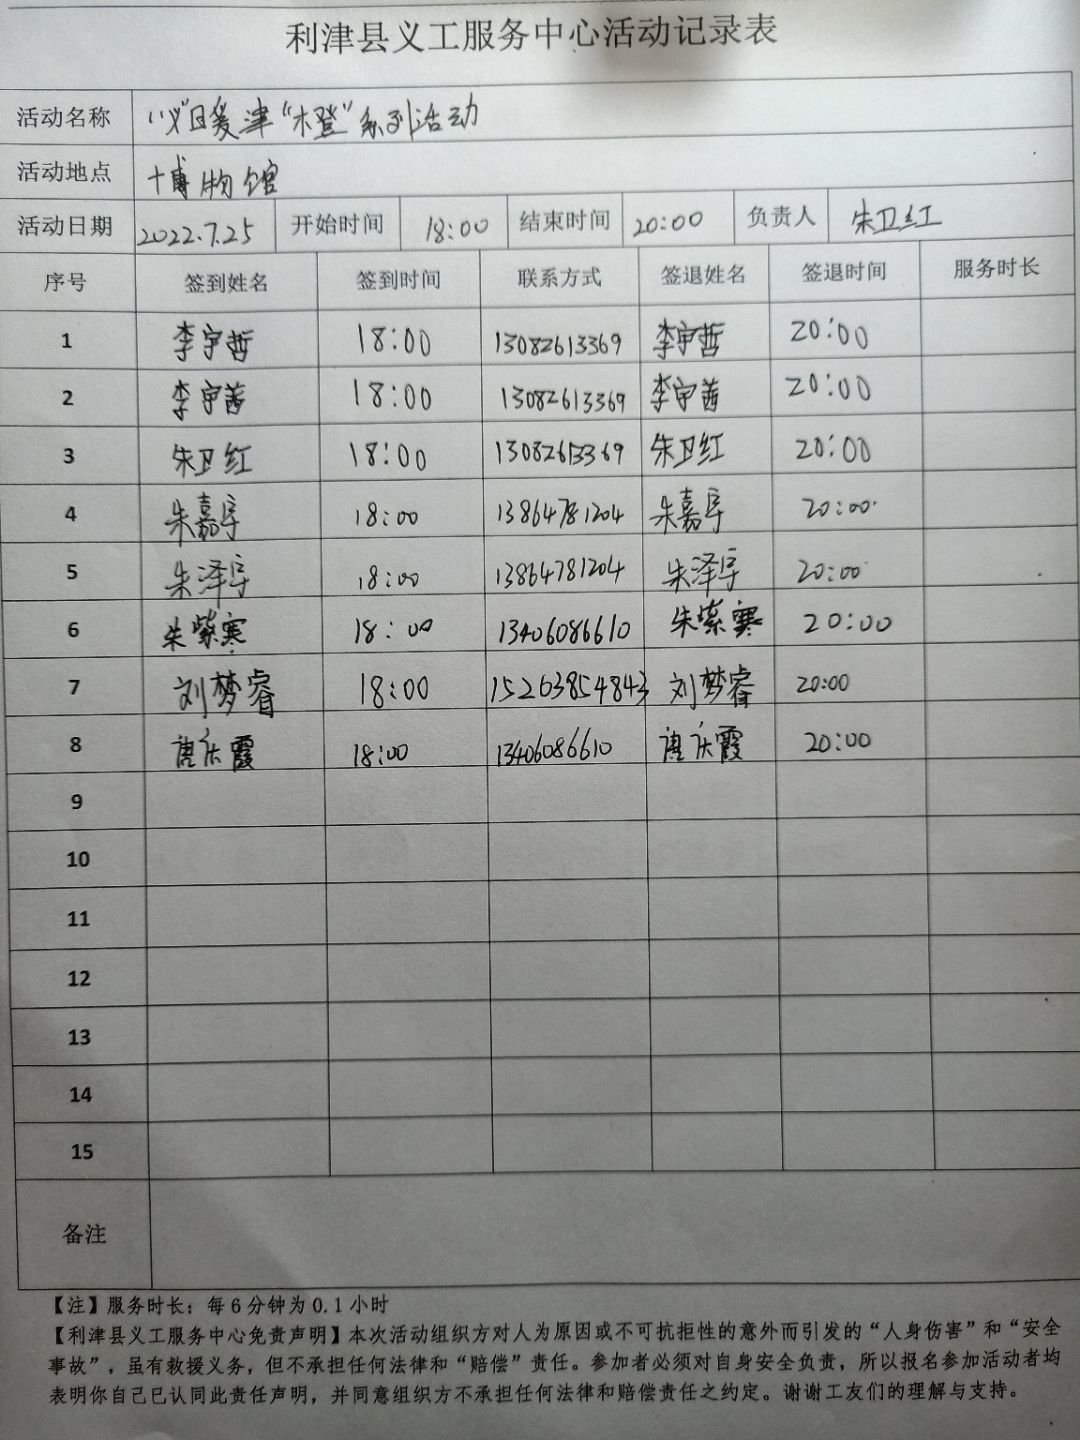 利津县义工服务中心活动记录表
活动名称 "义"曰暖津"橙"系列活动
活动地点 博物馆
活动日期 2022.7.25 开始时间 18:00 结束时间 20:00 负责人 朱卫红
序号 签到姓名 签到时间 联系方式 签退姓名 签退时间 服务时长
1 李宇哲 18:00 13082613369 李宇哲 20:00
2 李宇茜 18:00 13082613369 李宇茜 20:00
3 朱卫红 18:00 13082613369 朱卫红 20:00
4 朱嘉宇 18:00 13864781204 朱嘉宇 20:00
5 朱泽宇 18:00 13864781204 朱泽宇 20:00
6 朱紫寒 18:00 13406086610 朱紫寒 20:00
7 刘梦睿 18:00 15263854843 刘梦睿 20:00
8 唐庆霞 18:00 13406086610 唐庆霞 20:00
9
10
11
12
13
14
15
备注
【注】服务时长：每6分钟为0.1小时
【利津县义工服务中心免责声明】本次活动组织方对人为原因或不可抗拒性的意外而引发的“人身伤害”和“安全
事故”，虽有救援义务，但不承担任何法律和“赔偿”责任。参加者必须对自身安全负责，所以报名参加活动者均
表明你自己已认同此责任声明，并同意组织方不承担任何法律和赔偿责任之约定。谢谢工友们的理解与支持。